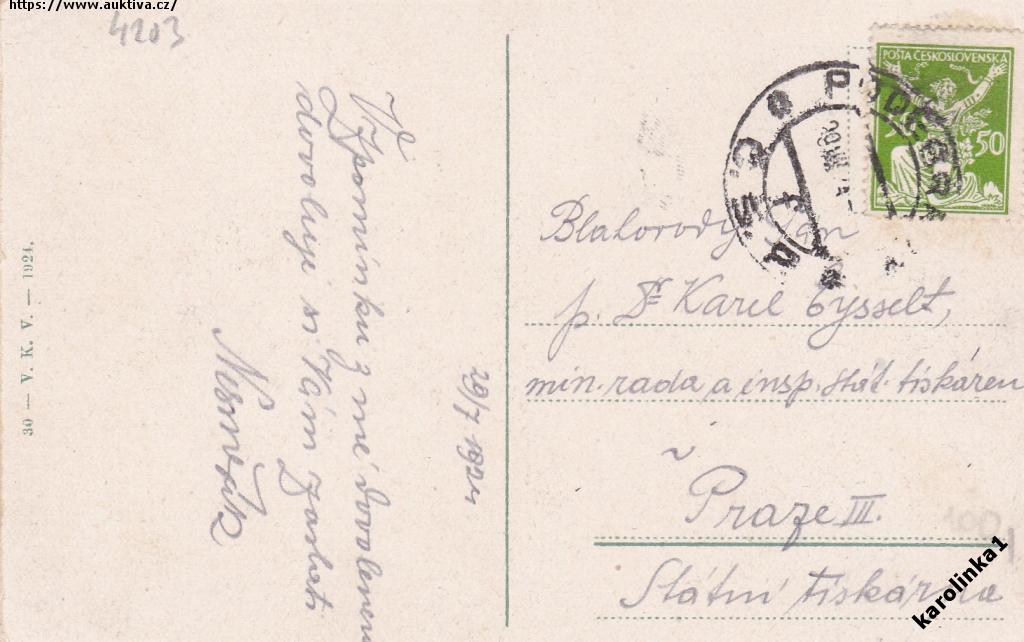 https://www.auktiva.cz/
4203
Vzpomínku z mé dovolené
dovoluji si Vám zaslati
29/7 1924
30 — V. K. V. — 1924.
POŠTA ČESKOSLOVENSKÁ
50
Blahorodý Pan
p. Dr Karel Cysselt,
min. rada a insp. stát. tiskáren
v
Praze III.
Státní tiskárna
karolinka1